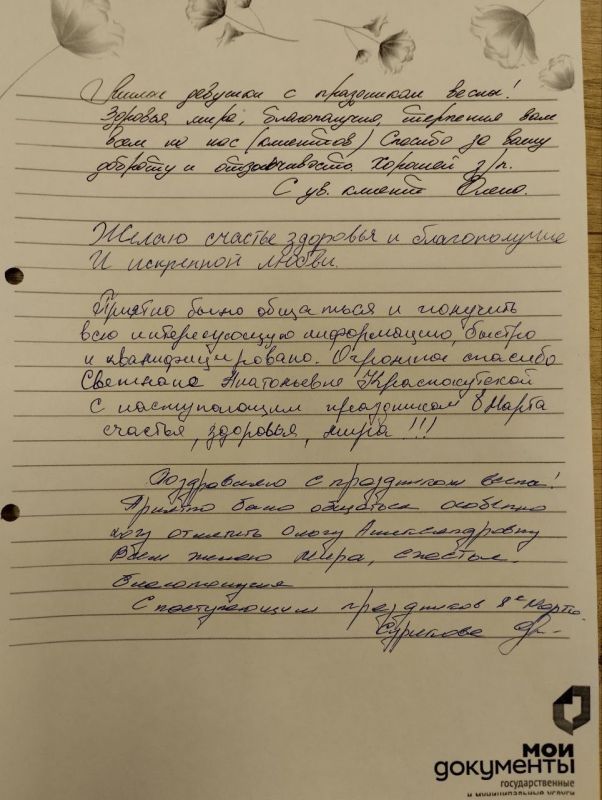 Милые девушки с праздником весны!
Здоровья мира, благополучия, терпения вам
всем на нас (клиентов) Спасибо за вашу
доброту и отзывчивость. Хорошей з/п.
С ув. клиент Елена.
Желаю счастье здоровья и благополучие
И искренной любви.
Приятно было общаться и получить
всю интересующую информацию, быстро
и квалифицировано. Огромное спасибо
Светлане Анатольевне Краснокутской
С наступающим праздником 8 Марта
счастья, здоровья, мира!!!
Поздравляю с праздником весны!
Приятно было общаться особенно
хочу отметить Ольгу Александровну
Всем желаю мира, счастья.
Благополучия
С наступающим праздников 8е Марта.
МОИ
ДОКУМЕНТЫ
государственные
и муниципальные услуги